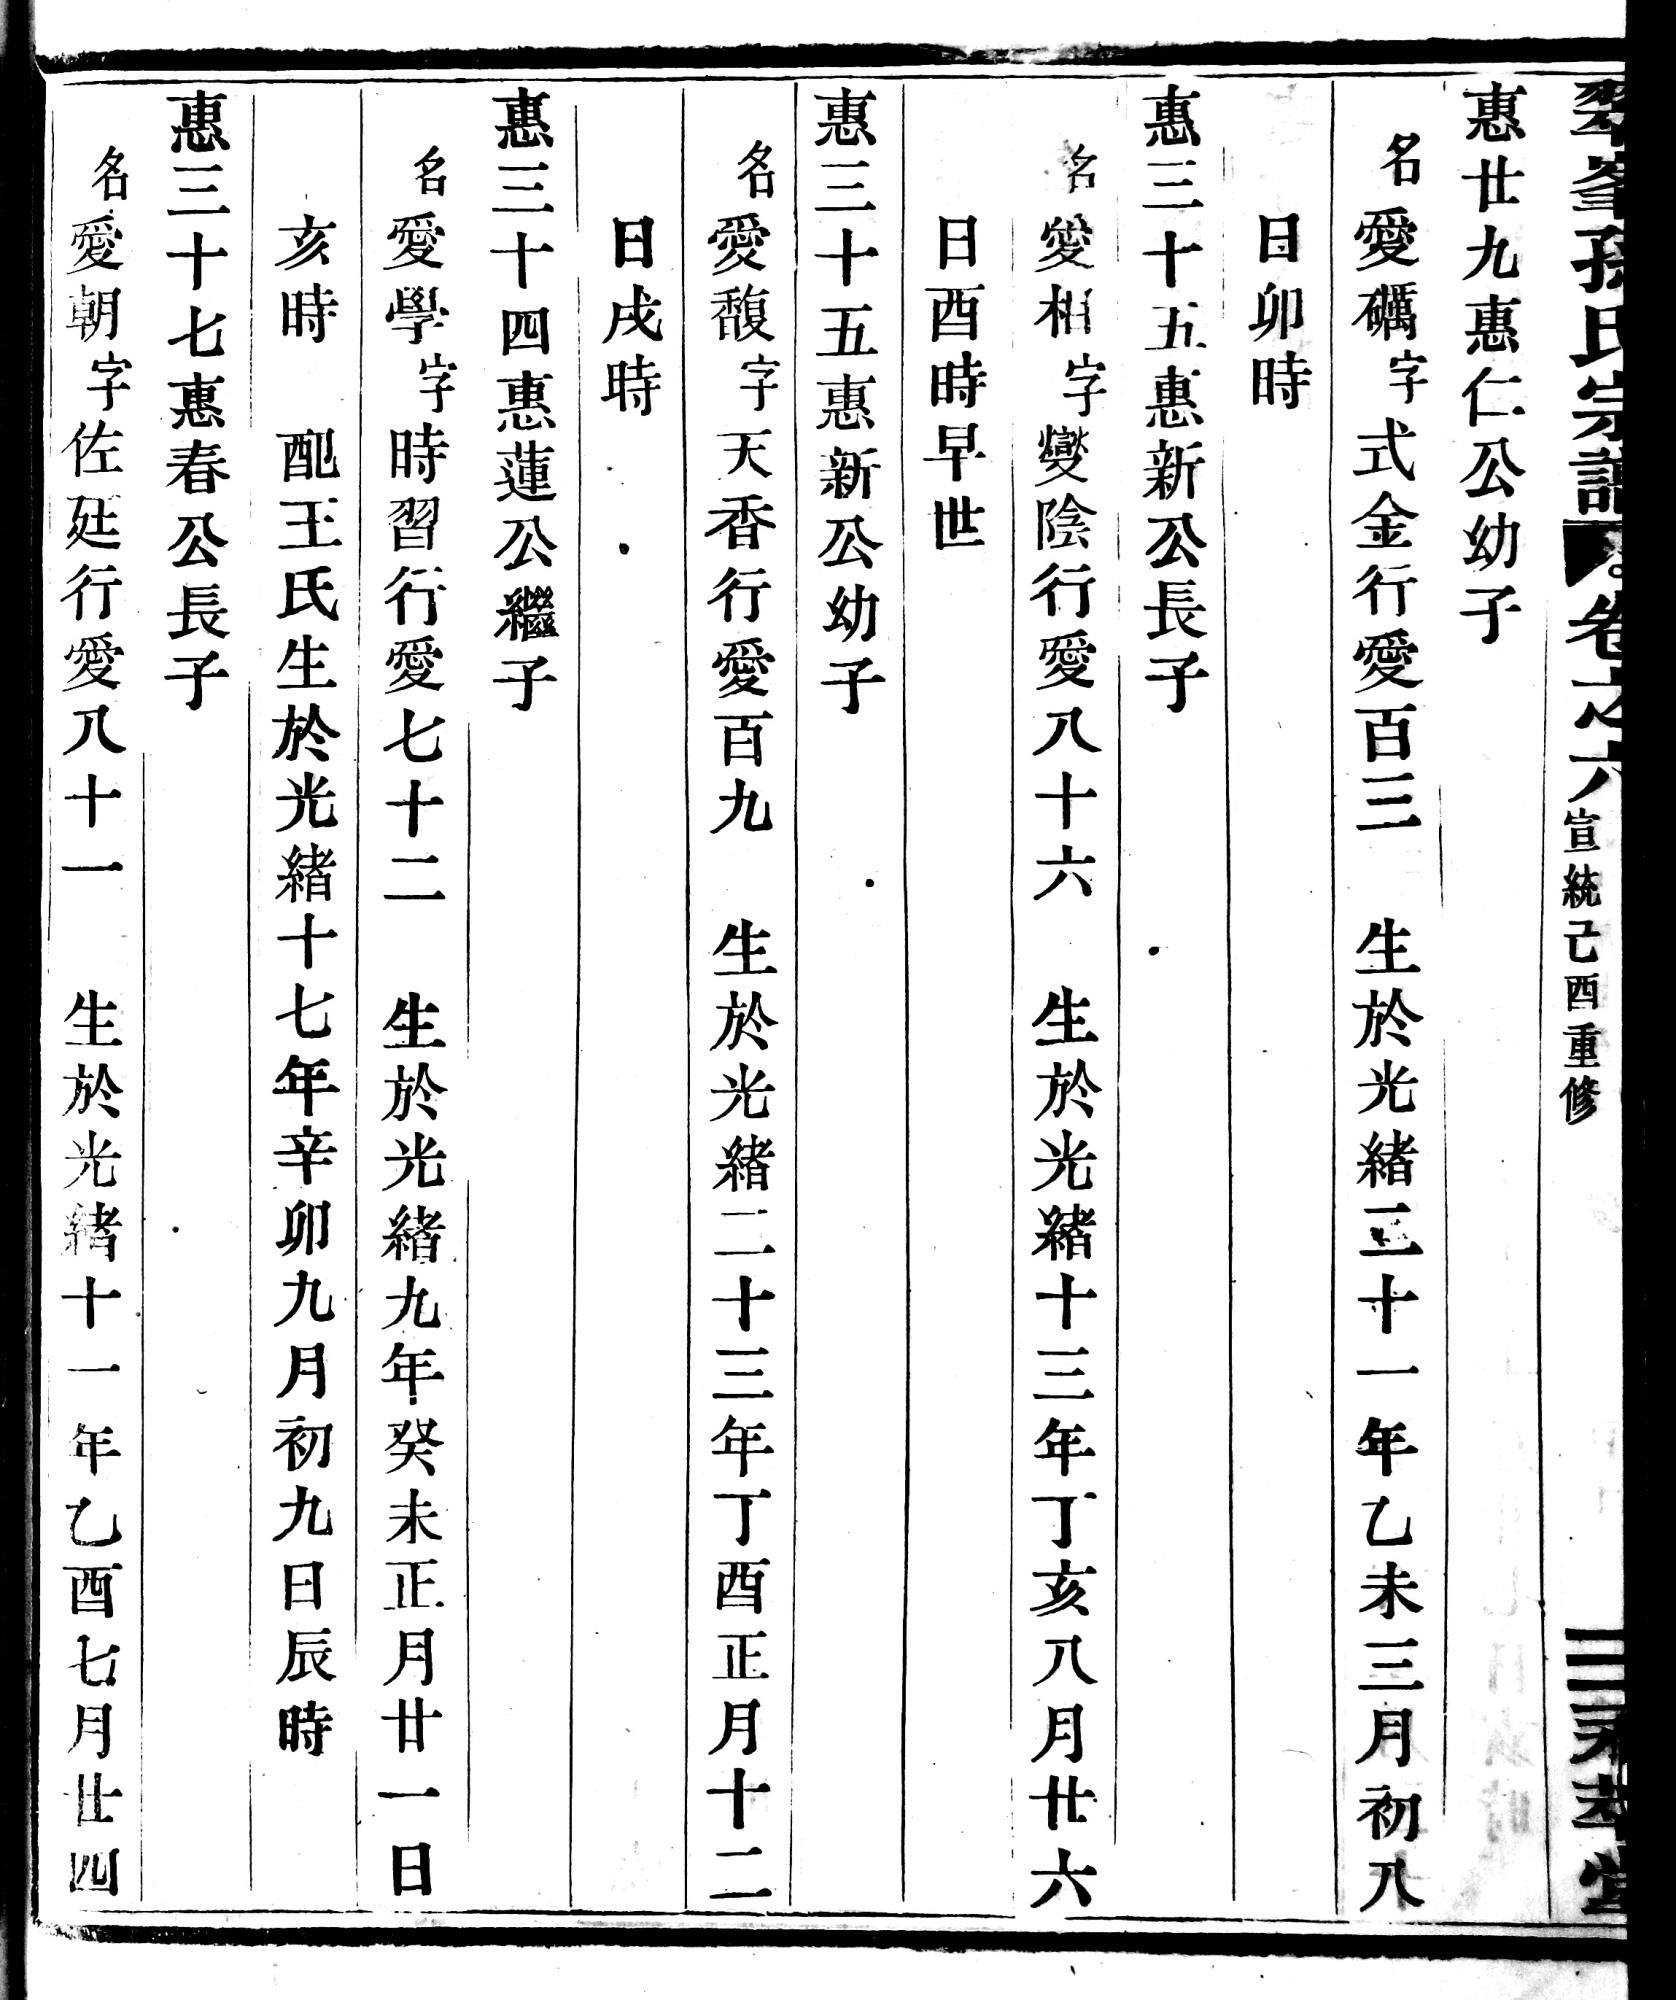 翠峯孫氏宗譜 卷之六 宣統己酉重修 堂
惠廿九惠仁公幼子
名愛礪字式金行愛百三 生於光緒三十一年乙未三月初八
日卯時
惠三十五惠新公長子
名愛相字燮陰行愛八十六 生於光緒十三年丁亥八月廿六
日酉時早世
惠三十五惠新公幼子
名愛馥字天香行愛百九 生於光緒二十三年丁酉正月十二
日戌時
惠三十四惠蓮公繼子
名愛學字時習行愛七十二 生於光緒九年癸未正月廿一日
亥時 配王氏生於光緒十七年辛卯九月初九日辰時
惠三十七惠春公長子
名愛朝字佐廷行愛八十一 生於光緒十一年乙酉七月廿四